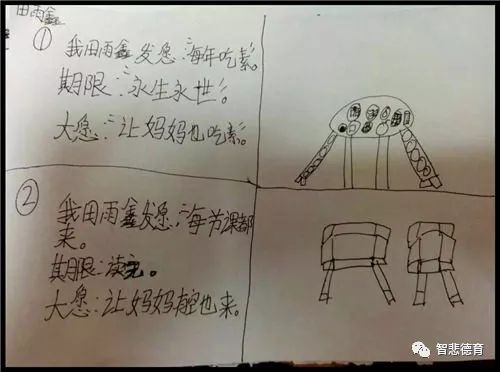 田雨鑫
①
我田雨鑫发愿:每年吃素。
期限:永生永世。
大愿:让妈妈也吃素。
②
我田雨鑫发愿,每节课都
来。
期限:读完。
大愿:让妈妈有空也来。
智悲德育